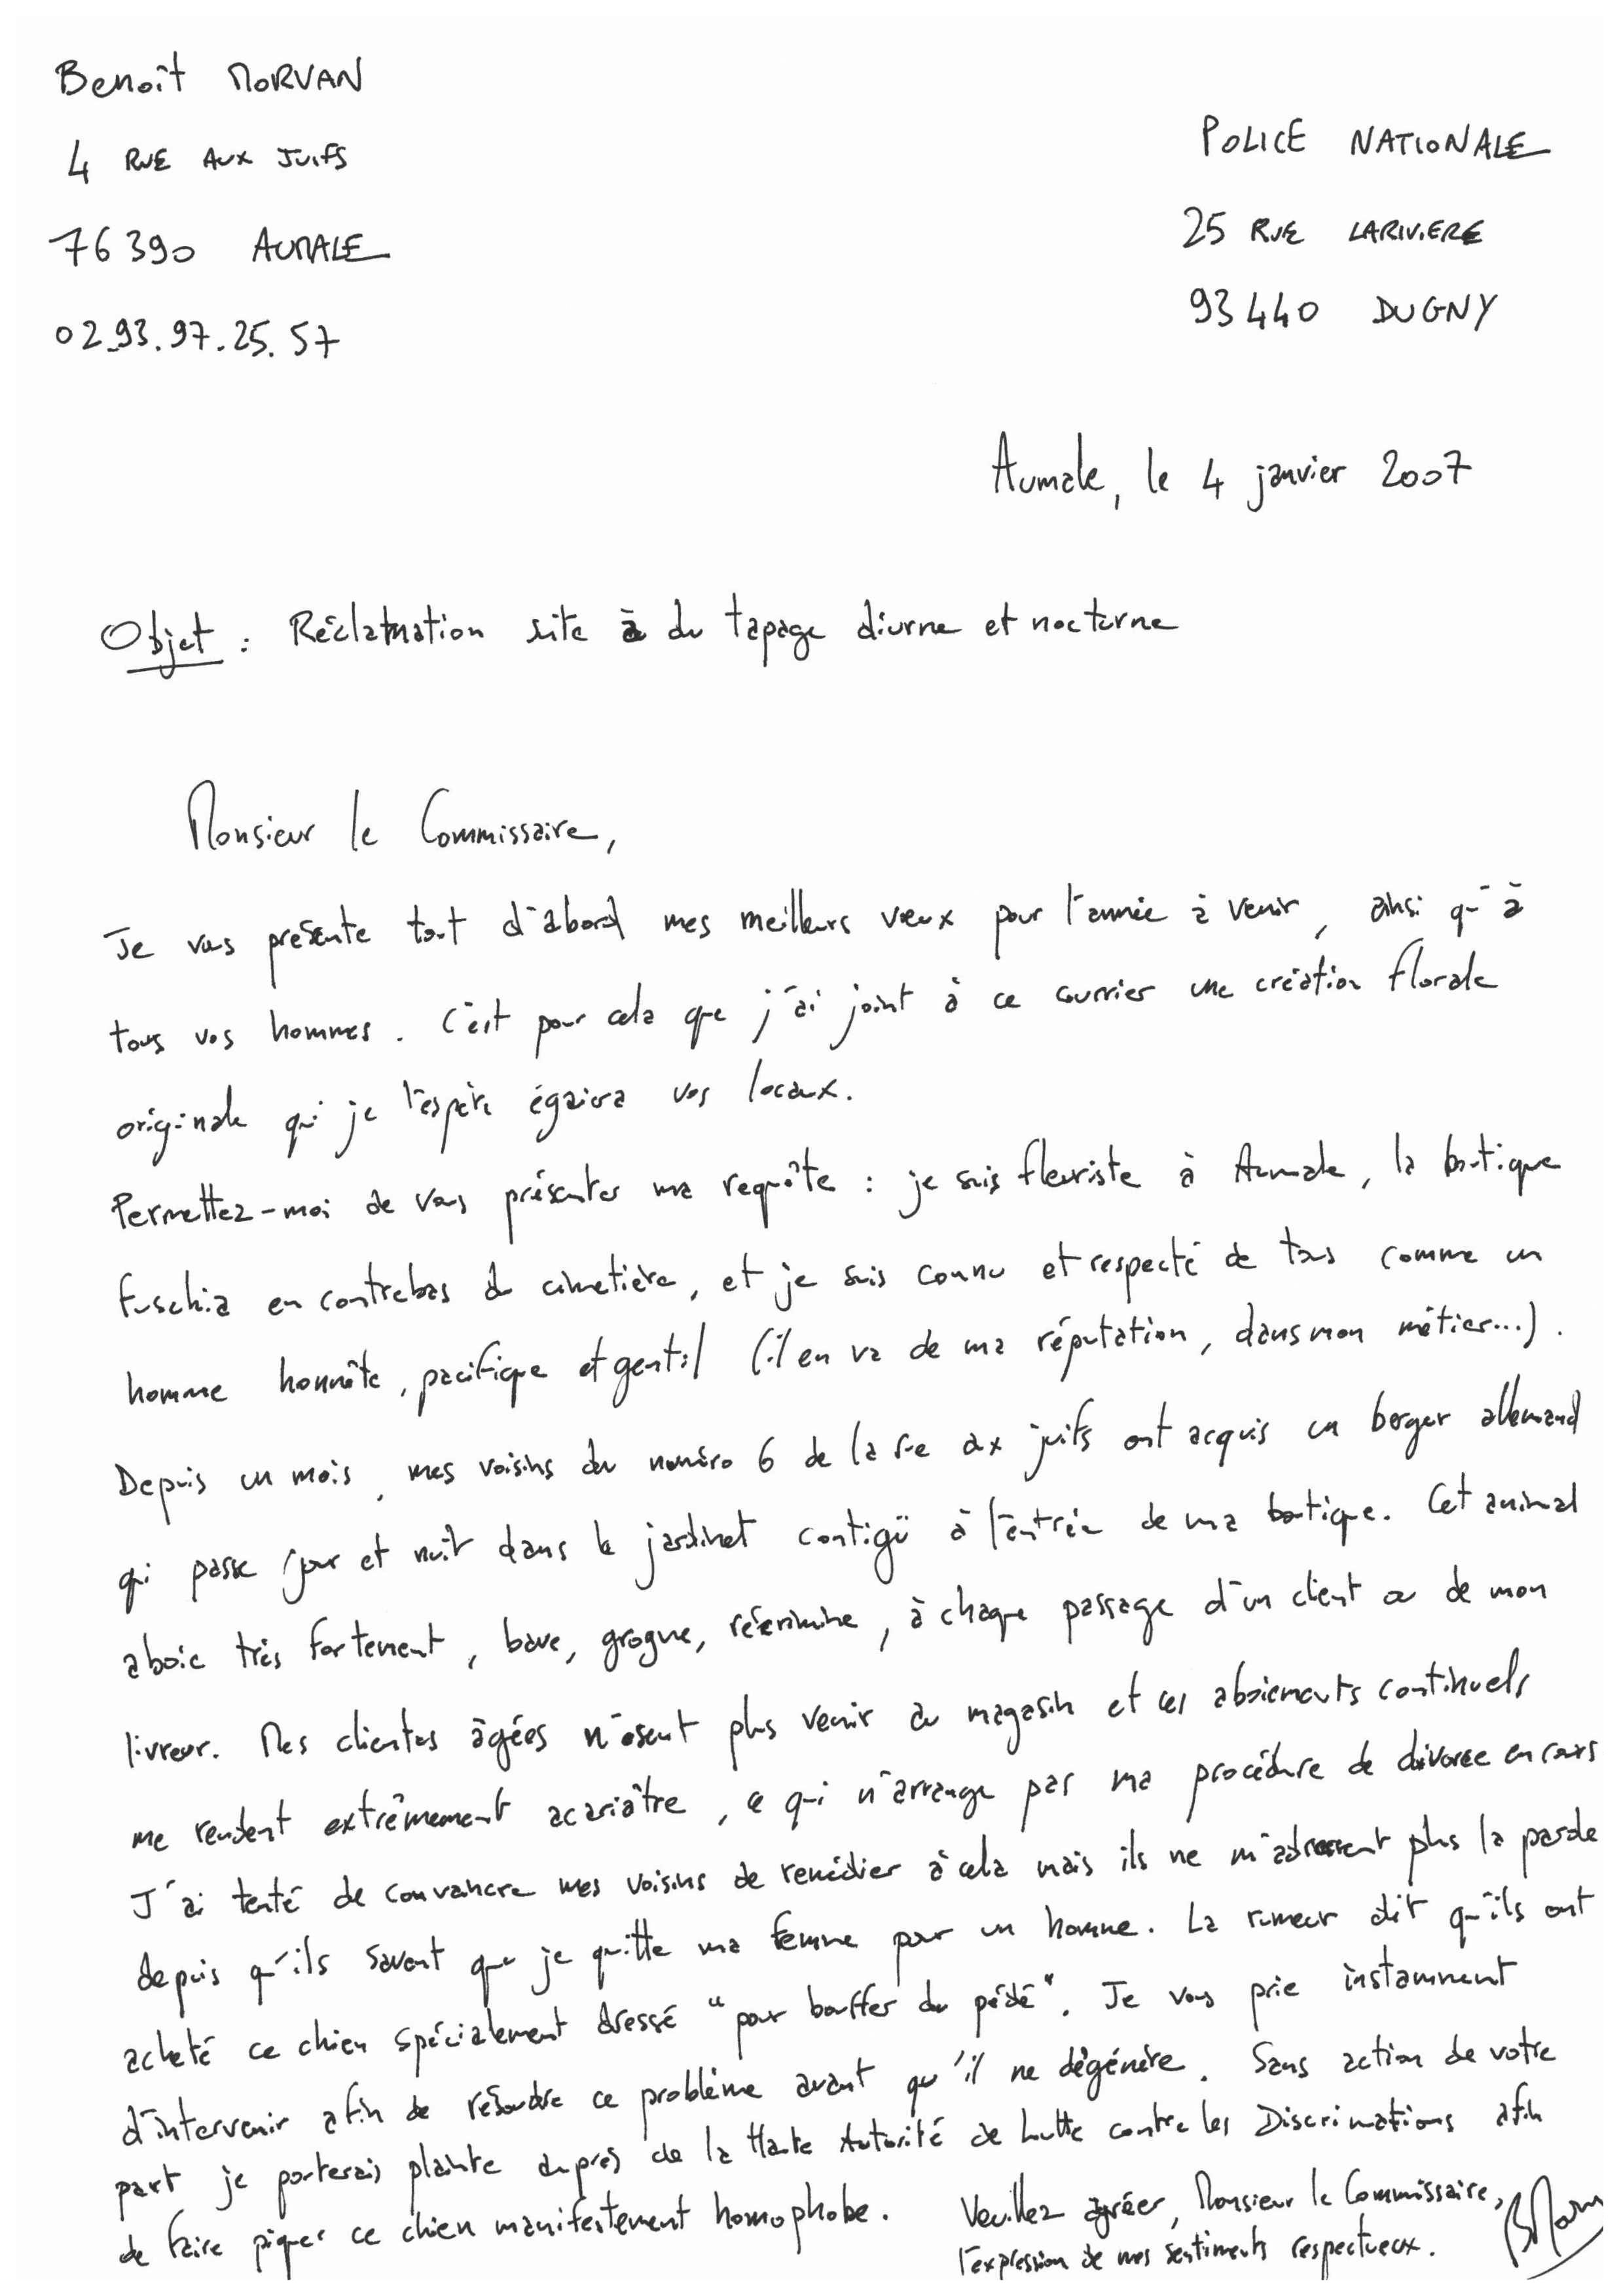 Benoît MORVAN
4 RUE AUX JUIFS
76390 AUMALE
02.93.97.25.57
POLICE NATIONALE
25 RUE LARIVIERE
93440 DUGNY
Aumale, le 4 janvier 2007
Objet : Réclamation suite à du tapage diurne et nocturne
Monsieur le Commissaire,
Je vous présente tout d'abord mes meilleurs vœux pour l'année à venir, ainsi qu'à
tous vos hommes. C'est pour cela que j'ai joint à ce courrier une création florale
originale qui je l'espère égaiera vos locaux.
Permettez-moi de vous présenter ma requête : je suis fleuriste à Aumale, la boutique
fuschia en contrebas du cimetière, et je suis connu et respecté de tous comme un
homme honnête, pacifique et gentil (il en va de ma réputation, dans mon métier...).
Depuis un mois, mes voisins du numéro 6 de la rue aux juifs ont acquis un berger allemand
qui passe jour et nuit dans le jardinet contigü à l'entrée de ma boutique. Cet animal
aboie très fortement, bave, grogne, récrimine, à chaque passage d'un client ou de mon
livreur. Mes clientes âgées n'osent plus venir au magasin et ces aboiements continuels
me rendent extrêmement acariâtre, ce qui n'arrange pas ma procédure de divorce en cours
J'ai tenté de convaincre mes voisins de remédier à cela mais ils ne m'adressent plus la parole
depuis qu'ils savent que je quitte ma femme pour un homme. La rumeur dit qu'ils ont
acheté ce chien spécialement dressé "pour bouffer du pédé". Je vous prie instamment
d'intervenir afin de résoudre ce problème avant qu'il ne dégénère. Sans action de votre
part je porterais plainte auprès de la Haute Autorité de Lutte contre les Discriminations afin
de faire piquer ce chien manifestement homophobe. Veuillez agréer, Monsieur le Commissaire,
l'expression de mes sentiments respectueux.